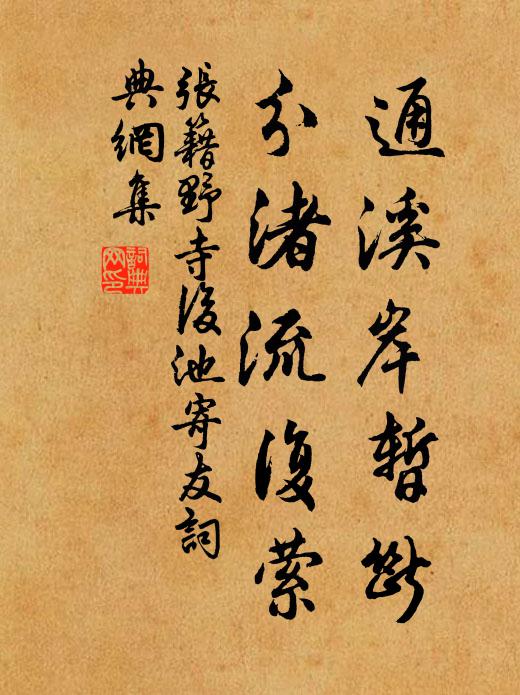 通溪岸暫斷
分渚流復縈
張籍野寺後池寄友詞
典網集
詞典網印